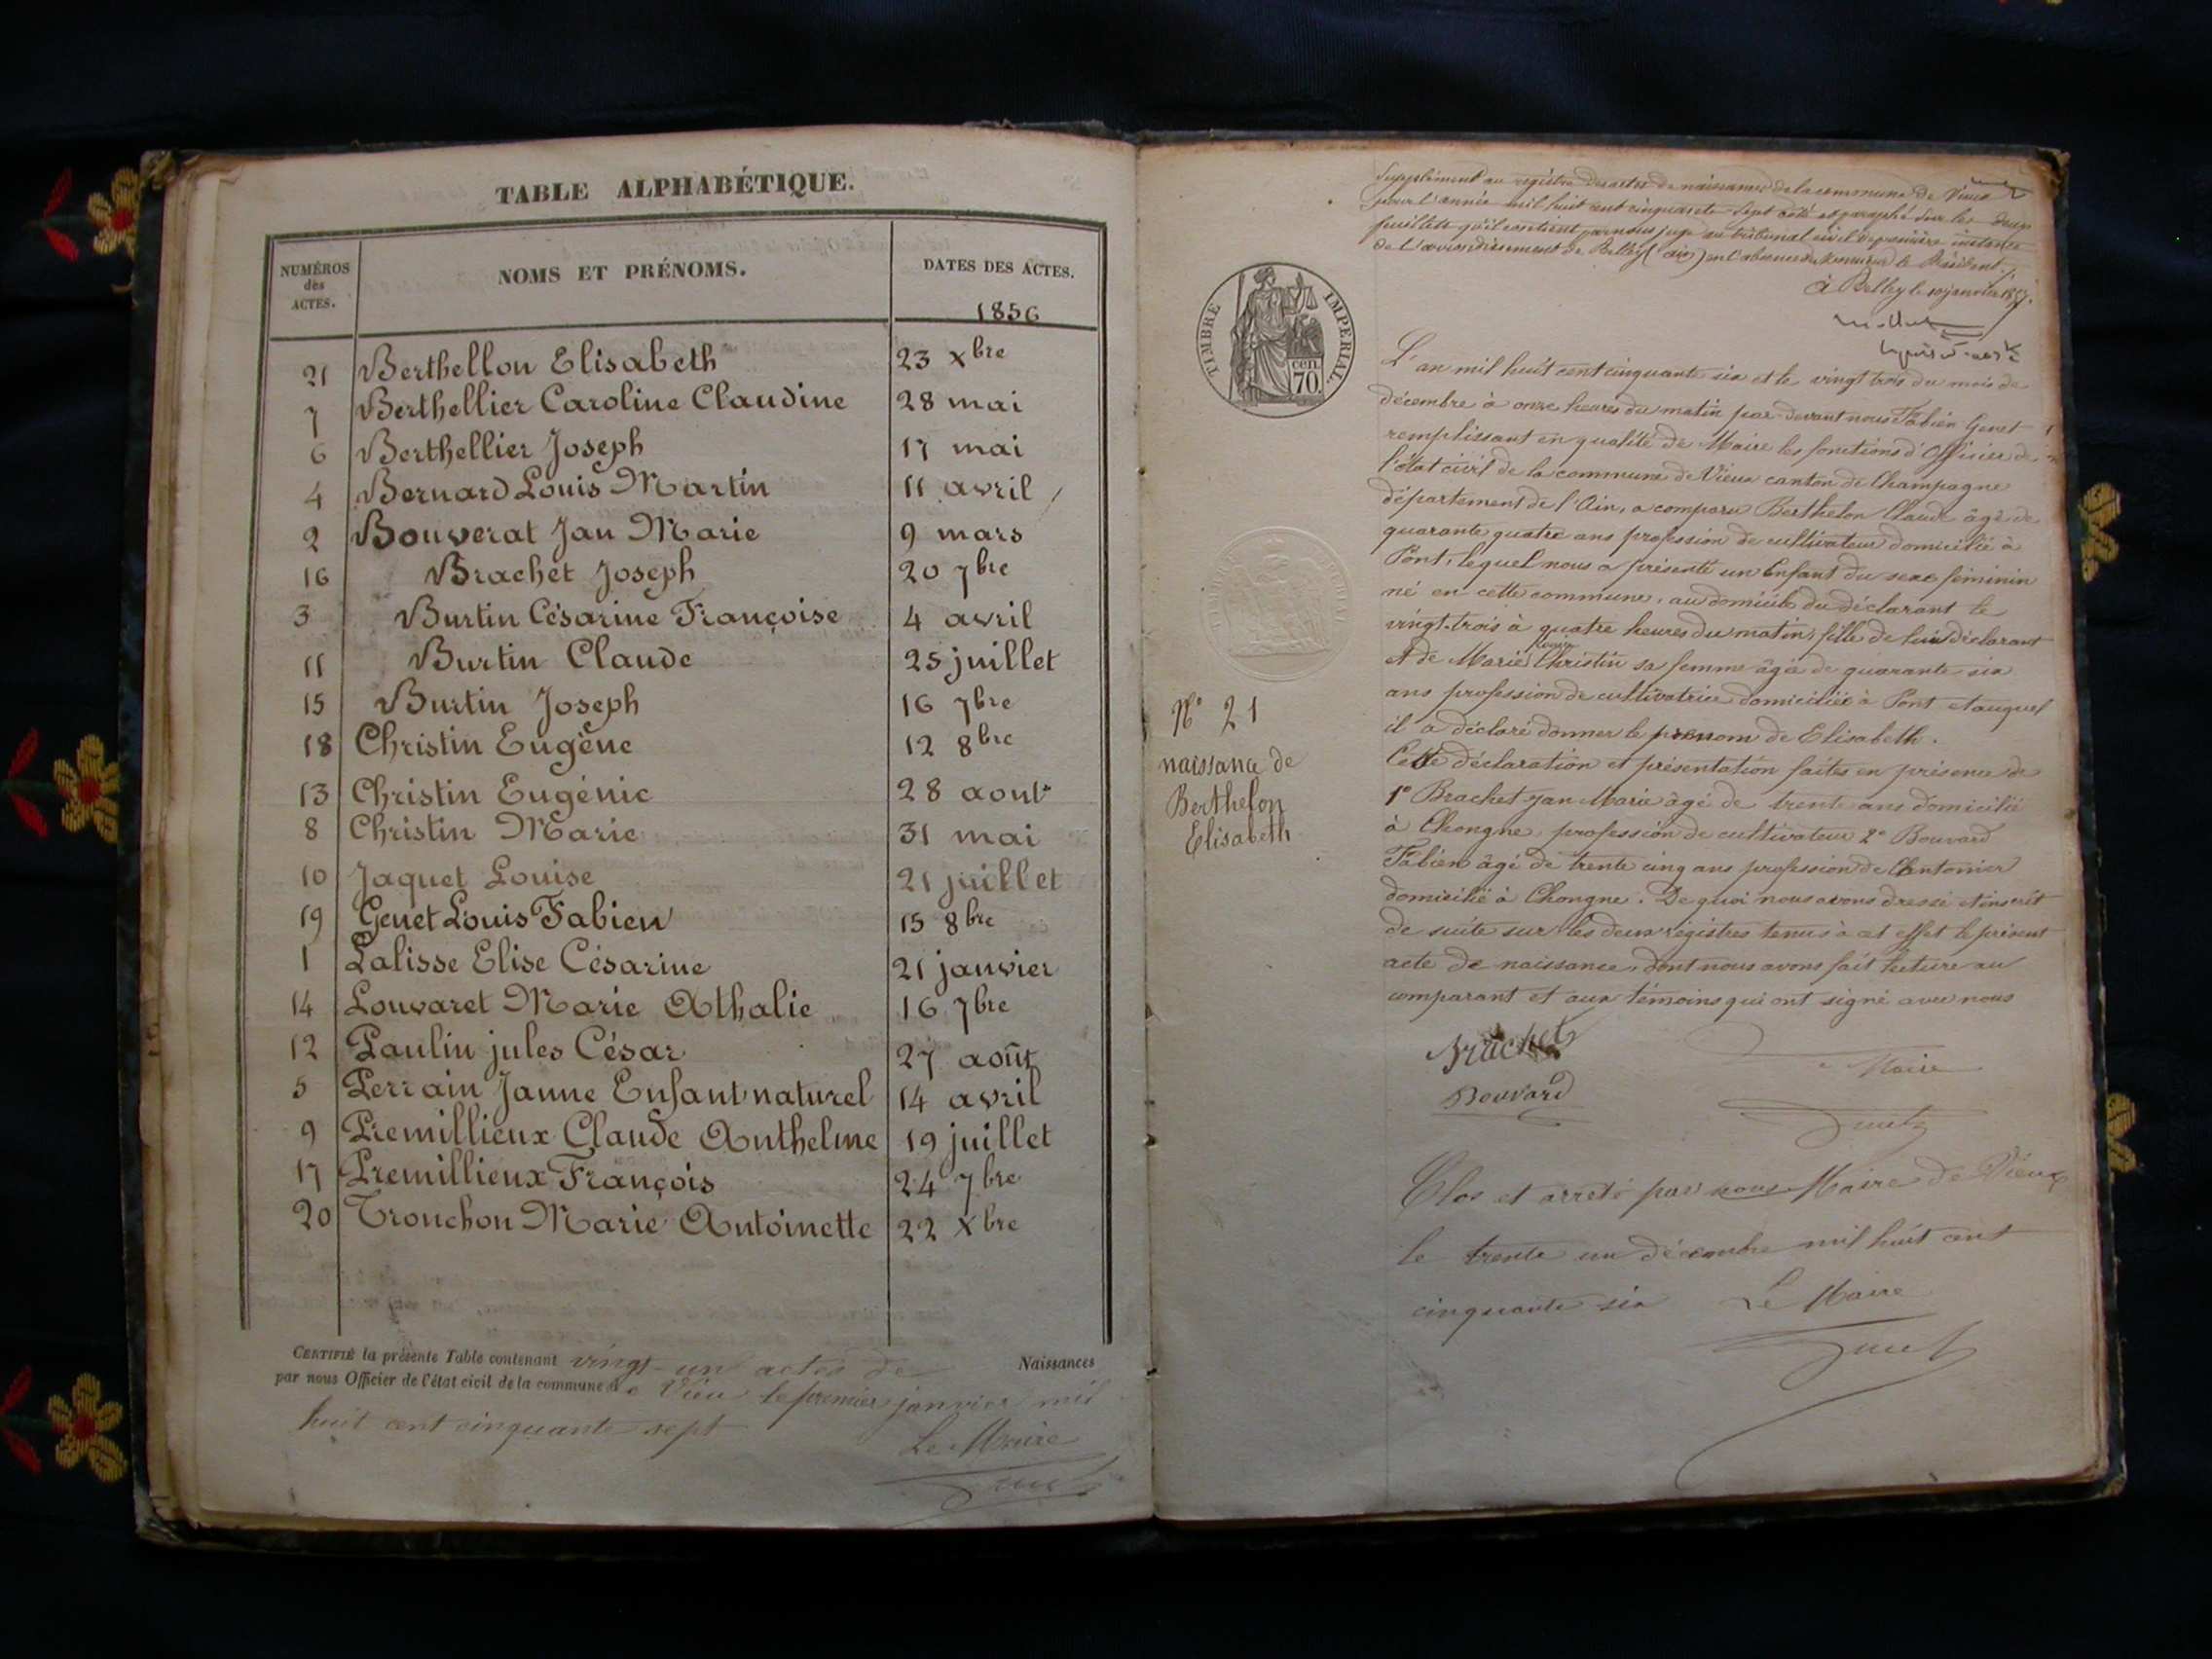 TABLE ALPHABÉTIQUE.
NUMÉROS
des
ACTES.
NOMS ET PRÉNOMS.
DATES DES ACTES.
1856
21 Berthellon Elisabeth 23 Xbre
7 Berthellier Caroline Claudine 28 mai
6 Berthellier Joseph 17 mai
4 Bernard Louis Martin 11 avril
2 Bouverat Jan Marie 9 mars
16 Brachet Joseph 20 7bre
3 Burtin Césarine Françoise 4 avril
11 Burtin Claude 25 juillet
15 Burtin Joseph 16 7bre
18 Christin Eugène 12 8bre
13 Christin Eugénie 28 aout
8 Christin Marie 31 mai
10 Jaquet Louise 21 juillet
19 Genet Louis Fabien 15 8bre
1 Lalisse Elise Césarine 21 janvier
14 Louvaret Marie Athalie 16 7bre
12 Paulin jules César 27 août
5 Perrain Janne Enfant naturel 14 avril
9 Premillieux Claude Anthelme 19 juillet
17 Premillieux François 24 7bre
20 Tronchon Marie Antoinette 22 Xbre
CERTIFIÉ la présente Table contenant vingt-un actes de Naissances
par nous Officier de l'état civil de la commune de Vieu le premier janvier mil
huit cent cinquante sept
Le Maire
Genet
Supplément au registre des actes de naissance de la commune de Vieux
pour l'année mil huit cent cinquante sept coté et paraphé sur les deux
feuillets qu'il contient par nous juge au tribunal civil de première instance
de l'arrondissement de Belley (ain) en l'absence de Monsieur le Président.
à Belley le 10 janvier 1857.
TIMBRE IMPERIAL.
cen.
70.
L'an mil huit cent cinquante six et le vingt trois du mois de
décembre à onze heures du matin par-devant nous Fabien Genet
remplissant en qualité de Maire les fonctions d'Officier de
l'état civil de la commune de Vieux canton de Champagne
département de l'Ain, a comparu Berthelon Claude âgé de
quarante quatre ans profession de cultivateur domicilié à
Pont, lequel nous a présenté un Enfant du sexe féminin
né en cette commune, au domicile du déclarant le
vingt-trois à quatre heures du matin, fille de lui déclarant
et de Marie Christin sa femme âgée de quarante six
ans profession de cultivatrice domiciliée à Pont et auquel
il a déclaré donner le prenom de Elisabeth.
Cette déclaration et présentation faites en présence de
1° Brachet Jan Marie âgé de trente ans domicilié
à Chongne, profession de cultivateur 2° Bouvard
Fabien âgé de trente cinq ans profession de Cantonier
domicilié à Chongne. De quoi nous avons dressé et inscrit
de suite sur les deux régistres tenus à cet effet le présent
acte de naissance, dont nous avons fait lecture au
comparant et aux témoins qui ont signé avec nous
N° 21
naissance de
Berthelon
Elisabeth
Brachet
Maire
Bouvard
Genet
Clos et arrêté par nous Maire de Vieux
le trente un décembre mil huit cent
cinquante six Le Maire
Genet